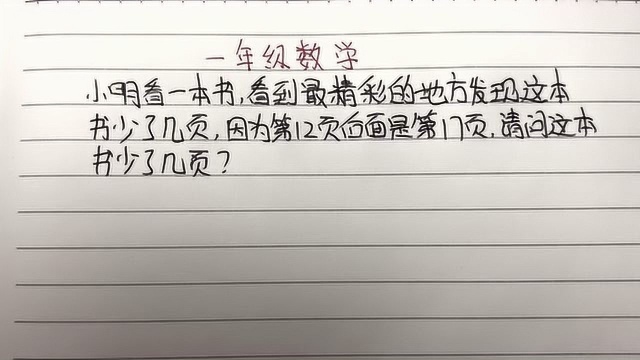 一年级数学
小明看一本书,看到最精彩的地方发现这本
书少了几页,因为第12页后面是第17页,请问这本
书少了几页?